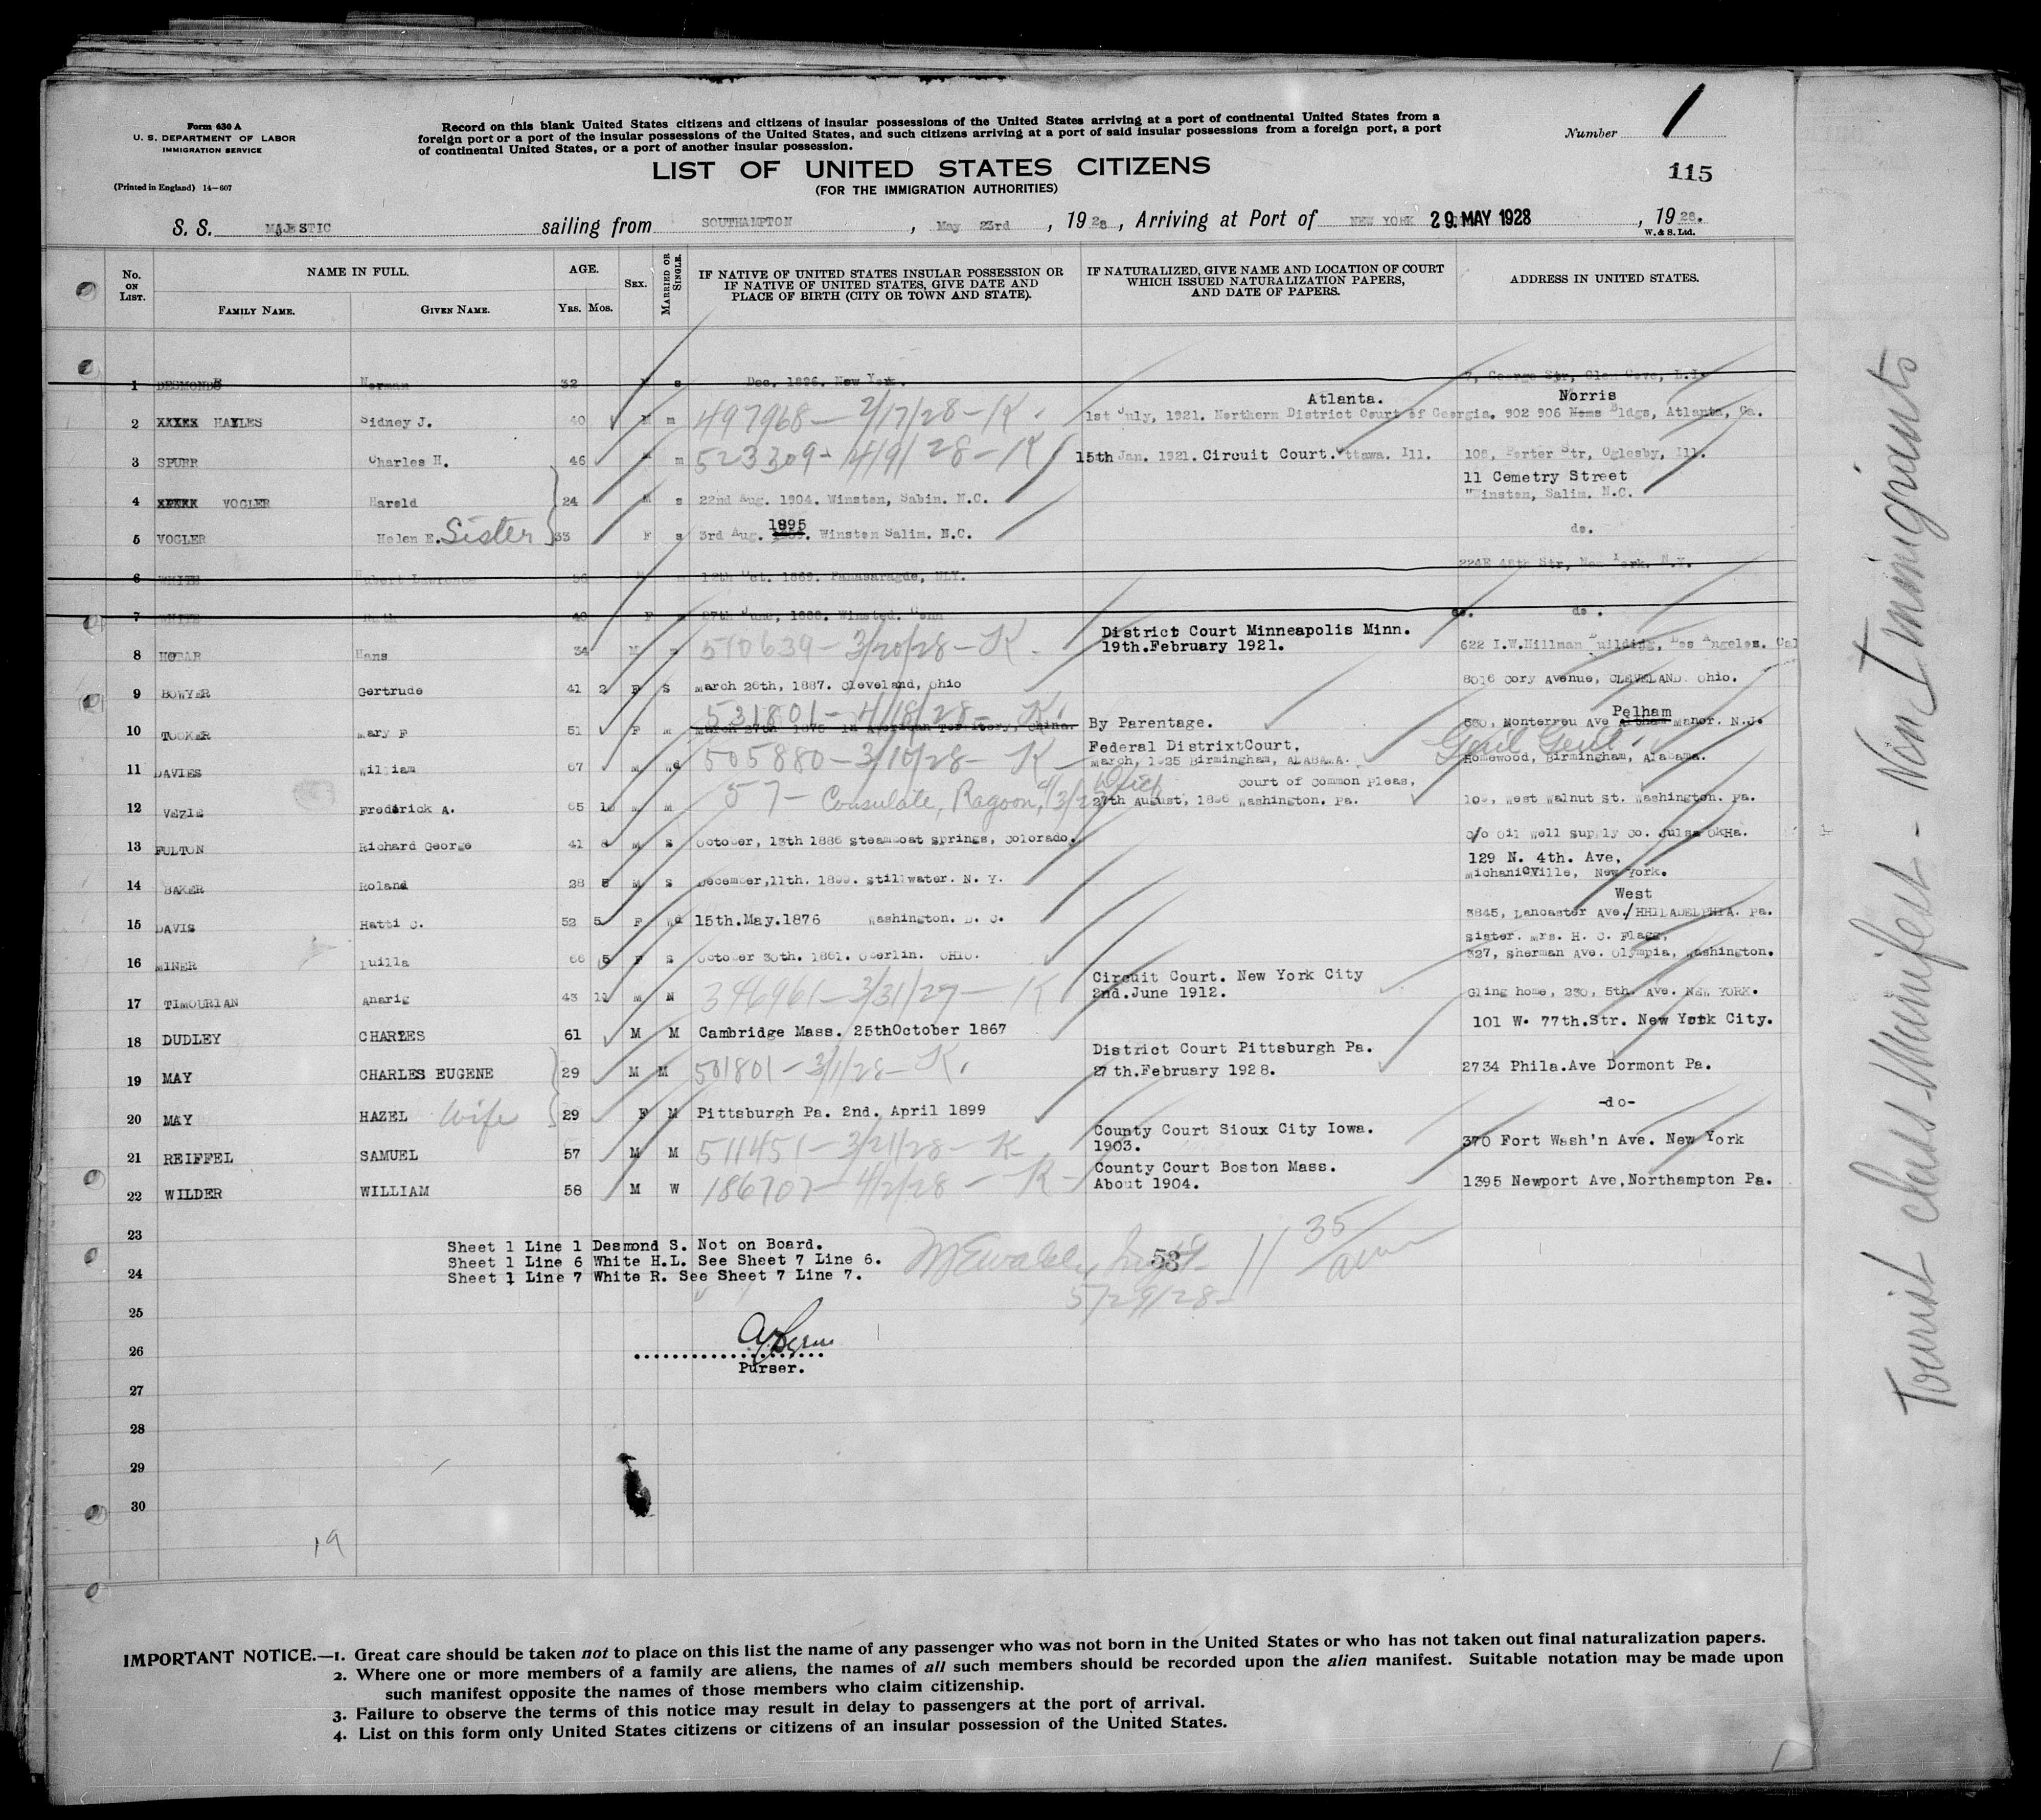 Form 630 A
U. S. DEPARTMENT OF LABOR
IMMIGRATION SERVICE
(Printed in England) 14—607
Record on this blank United States citizens and citizens of insular possessions of the United States arriving at a port of continental United States from a
foreign port or a port of the insular possessions of the United States, and such citizens arriving at a port of said insular possessions from a foreign port, a port
of continental United States, or a port of another insular possession.
Number 1
115
LIST OF UNITED STATES CITIZENS
(FOR THE IMMIGRATION AUTHORITIES)
S. S. MAJESTIC sailing from SOUTHAMPTON , May 23rd , 1928 , Arriving at Port of NEW YORK 29 MAY 1928 , 1928.
W. & S. Ltd.
No. ON LIST. NAME IN FULL. AGE. SEX. MARRIED OR SINGLE. IF NATIVE OF UNITED STATES INSULAR POSSESSION OR IF NATIVE OF UNITED STATES, GIVE DATE AND PLACE OF BIRTH (CITY OR TOWN AND STATE). IF NATURALIZED, GIVE NAME AND LOCATION OF COURT WHICH ISSUED NATURALIZATION PAPERS, AND DATE OF PAPERS. ADDRESS IN UNITED STATES.
FAMILY NAME. GIVEN NAME. YRS. MOS.
1 DESMONDS Norman 32 s Dec. 1896. New York. 7, George Str, Glen Cove, L.I.
Atlanta. Norris
2 XXXXX HAYLES Sidney J. 40 M m 497968 — 2/17/28 — K. 1st July, 1921. Northern District Court of Georgia. 902 906 Nems Bldgs, Atlanta, Ga.
3 SPURR Charles H. 46 m 523309 - 4/9/28 — K 15th Jan. 1921. Circuit Court. Ottawa. Ill. 108, Porter Str, Oglesby, Ill.
11 Cemetry Street
4 XXXXX VOGLER Harold 24 M s 22nd Aug. 1904. Winston, Sabin. N.C. Winston, Salim. N.C.
1895
5 VOGLER Helen E. Sister 33 F s 3rd Aug. Winston Salim. N.C. do.
6 WHITE Hubert Lawrence 224E 48th Str, New York. N.Y.
7 WHITE Ruth 40 F 27th June, 1888. Winsted. Conn do. do.
District Court Minneapolis Minn.
8 HOBAR Hans 34 M 510639 — 3/20/28 — K. 19th.February 1921. 622 I.W.Hillman Building, Los Angeles. Cal
9 BOWYER Gertrude 41 2 F S March 26th, 1887. Cleveland, Ohio 8016 Cory Avenue, CLEVELAND. Ohio.
531801 — 4/18/28 — K. Pelham
10 TOOKER Mary F 51 F M March 27th 1876 in American Territory, China. By Parentage. 580, Monterreu Ave Manor. N.J.
Federal DistrixtCourt,
11 DAVIES William 67 M Wd 505880 — 3/10/28 — K March, 1925 Birmingham, ALABAMA. Homewood, Birmingham, Alabama.
Court of Common Pleas,
12 VEZIE Frederick A. 65 10 M M 57 — Consulate, Ragoon, 27th August, 1896 Washington. Pa. West Walnut St. Washington. Pa.
13 FULTON Richard George 41 M S October, 13th 1886 Steamboat Springs, Colorado. c/o Oil Well Supply Co. Tulsa OkHa.
129 N. 4th. Ave,
14 BAKER Roland 28 5 M S December,11th. 1899. Stillwater. N. Y. Michanicville, New York.
West
15 DAVIS Hatti C. 52 5 F Wd 15th.May.1876 Washington. D. C. 3845, Lancaster Ave./ HHILADELPHIA. Pa.
Sister. Mrs. H. C. Flagg,
16 MINER Luilla 66 5 F S October 30th. 1861. Oberlin. OHIO. 327, Sherman Ave. Olympia, Washington.
Circuit Court. New York City
17 TIMOURIAN Anarig 43 M 346961 — 3/31/27 — K 2nd.June 1912. Gling home, 230, 5th. Ave. NEW YORK.
18 DUDLEY CHARLES 61 M M Cambridge Mass. 25thOctober 1867 101 W. 77th.Str. New York City.
District Court Pittsburgh Pa.
19 MAY CHARLES EUGENE 29 M M 501801 — 3/1/28 — K. 27th.February 1928. 2734 Phila.Ave Dormont Pa.
20 MAY HAZEL Wife 29 F M Pittsburgh Pa. 2nd. April 1899 -do-
County Court Sioux City Iowa.
21 REIFFEL SAMUEL 57 M M 511451 — 3/21/28 — K 1903. 370 Fort Wash'n Ave. New York
County Court Boston Mass.
22 WILDER WILLIAM 58 M W 186707 — 4/2/28 — K — About 1904. 1395 Newport Ave,Northampton Pa.
23
Sheet 1 Line 1 Desmond S. Not on Board.
Sheet 1 Line 6 White H.L. See Sheet 7 Line 6.
24 Sheet 1 Line 7 White R. See Sheet 7 Line 7.
53
35
5/29/28 —
25
26
Purser.
27
28
29
30
19
IMPORTANT NOTICE.—1. Great care should be taken not to place on this list the name of any passenger who was not born in the United States or who has not taken out final naturalization papers.
2. Where one or more members of a family are aliens, the names of all such members should be recorded upon the alien manifest. Suitable notation may be made upon
such manifest opposite the names of those members who claim citizenship.
3. Failure to observe the terms of this notice may result in delay to passengers at the port of arrival.
4. List on this form only United States citizens or citizens of an insular possession of the United States.
Tourist class Manifest - Non Immigrants